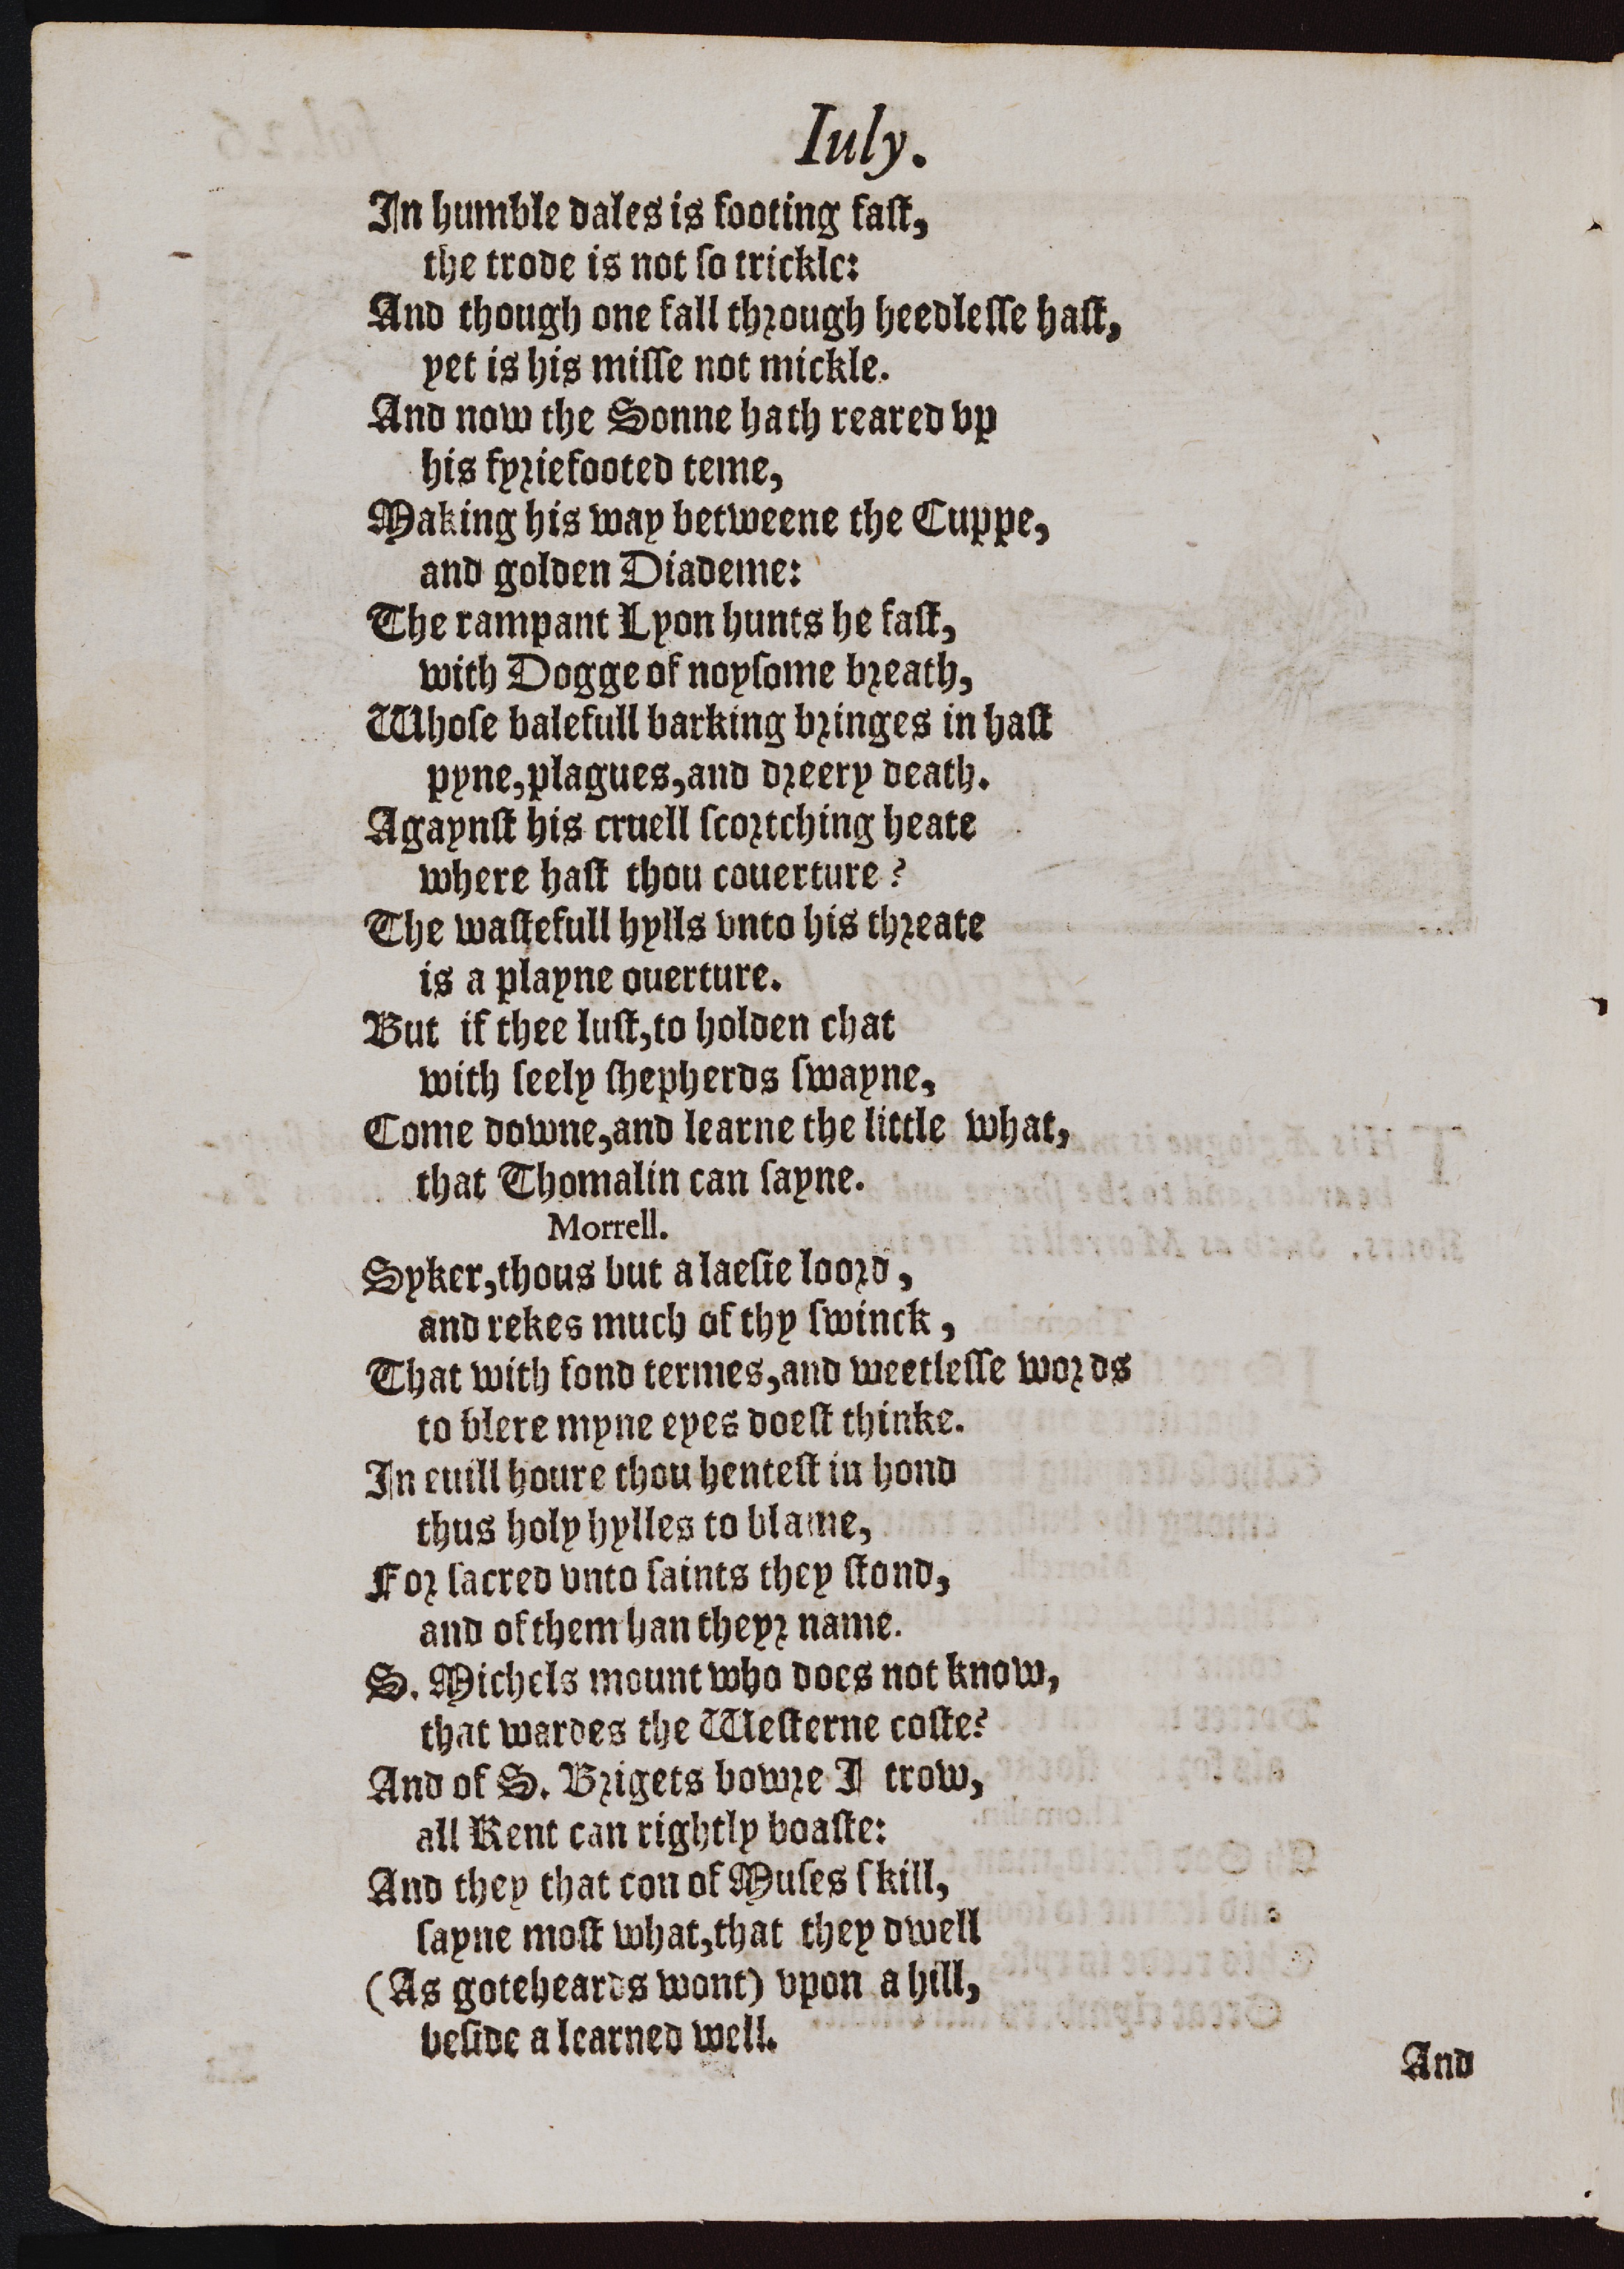 Iuly.
In humble dales is footing fast,
the trode is not so trickle:
And though one fall through heedlesse hast,
yet is his misse not mickle.
And now the Sonne hath reared vp
his fyriefooted teme,
Making his way betweene the Cuppe,
and golden Diademe:
The rampant Lyon hunts he fast,
with Dogge of noysome breath,
Whose balefull barking bringes in hast
pyne, plagues, and dreery death.
Agaynst his cruell scortching heate
where hast thou couerture?
The wastefull hylls vnto his threate
is a playne ouerture.
But if thee lust, to holden chat
with seely shepherds swayne,
Come downe, and learne the little what,
that Thomalin can sayne.
Morrell.
Syker, thous but a laesie loord,
and rekes much of thy swinck,
That with fond termes, and weetlesse words
to blere myne eyes doest thinke.
In euill houre thou hentest in hond
thus holy hylles to blame,
For sacred vnto saints they stond,
and of them han theyr name.
S. Michels mount who does not know,
that wardes the Westerne coste?
And of S. Brigets bowre I trow,
all Kent can rightly boaste:
And they that con of Muses skill,
sayne most what, that they dwell
(As goteheards wont) vpon a hill,
beside a learned well.
And